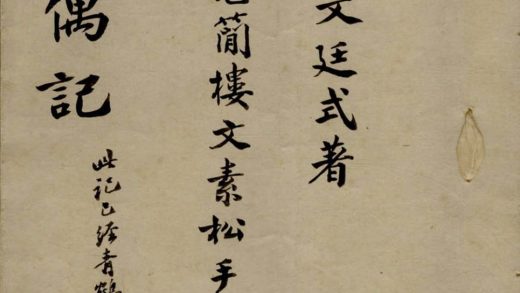 文廷式著
簡樓文素松手
偶記
此記已經青鶴